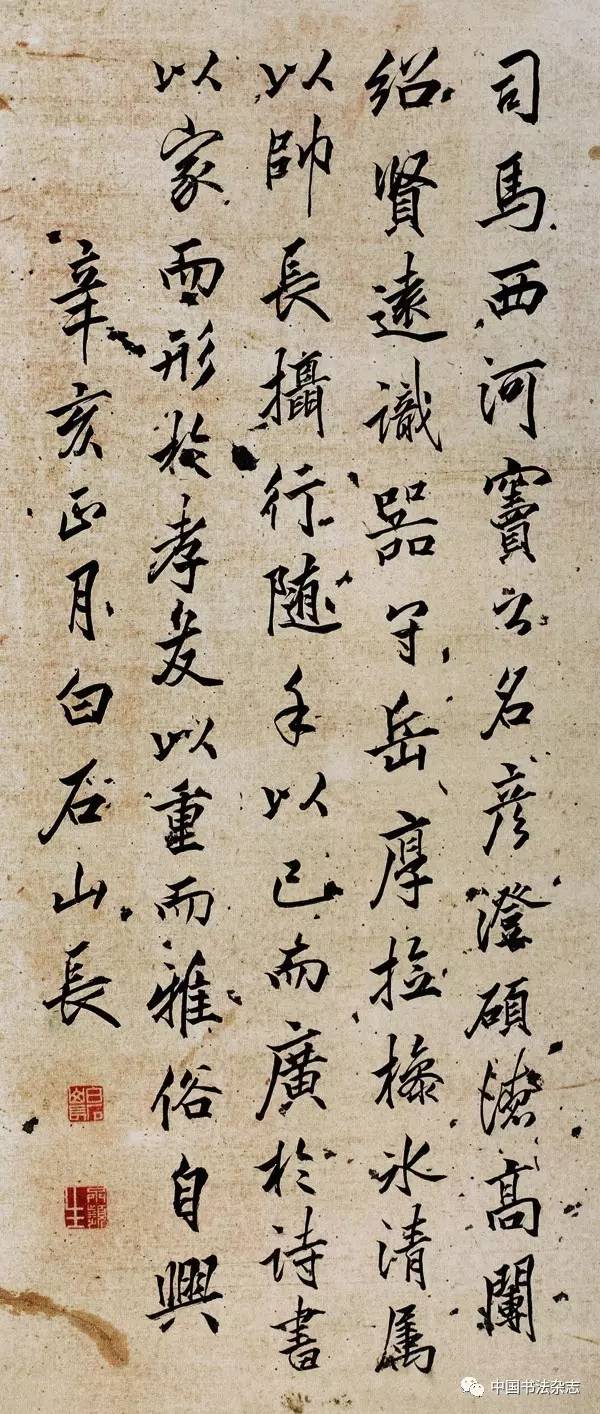 司馬西河竇公名彦澄碩德高闌
紹賢遠識器守岳厚撿操冰清属
以帥長攝行随手以己而廣於诗書
以家而形於孝友以重而雅俗自興
辛亥正月白石山長
中国书法杂志